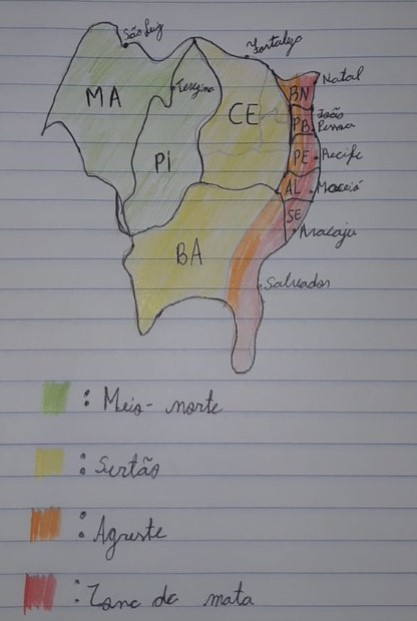 São Luiz
Fortaleza
Teresina
Natal
MA
CE
RN
João
Pessoa
PB
PI
PE
Recife
AL
Maceió
SE
Aracaju
BA
Salvador
: Meio-norte
: Sertão
: Agreste
: Zona da mata